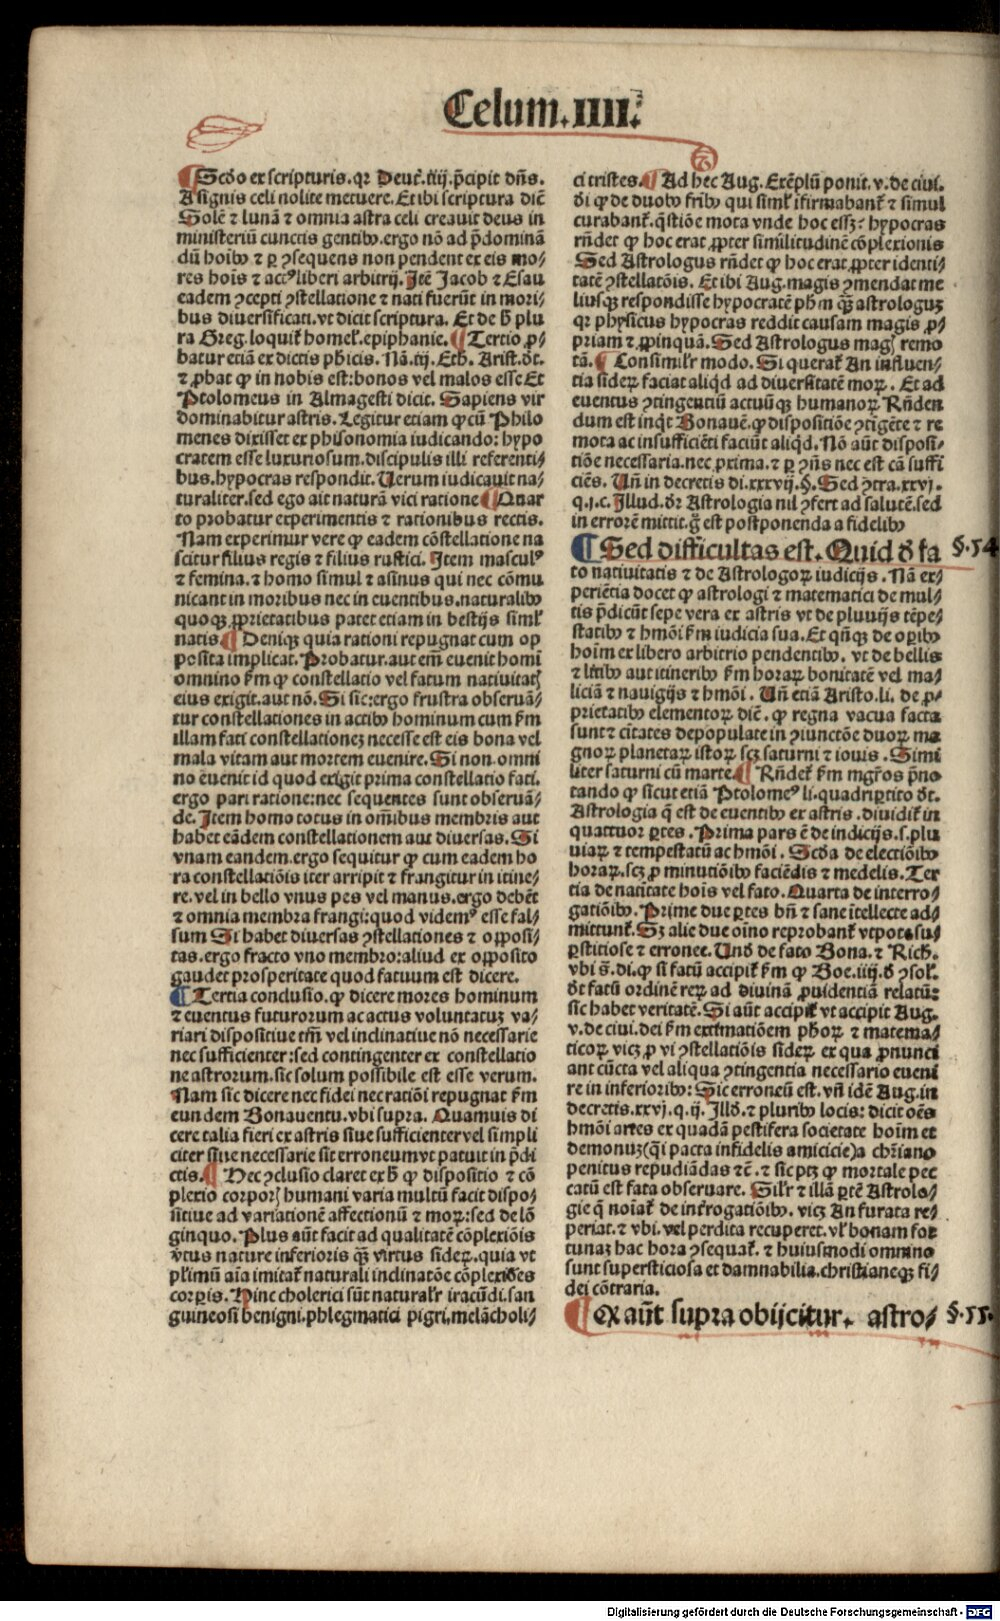 Celum.IIII.
¶ Scd̕o ex scripturis.qꝛ Deut̕.iiij.p̄cipit dn̄s.
A signis celi nolite metuere. Et ibi scriptura dic̄
Solē ⁊ lunā ⁊ omnia astra celi creauit deus in
ministeriū cunctis gentibꝰ.ergo nō ad p̄dominā
dū hoibꝰ ⁊ ꝑ ꝯsequens non pendent ex eis mo/
res hoīs ⁊ actꝰ liberi arbitrij. Itē Jacob ⁊ Esau
eadem ꝯcepti ꝯstellatione ⁊ nati fuerūt in mori/
bus diuersificati.vt dicit scriptura. Et de h̄ plu
ra Greg.loquit̕ homel̕.epiphanie. ¶ Tertio ꝓ/
batur etiā ex dictis ph̄icis. Nā.iij. Eth. Arist.dt̄.
⁊ ꝓbat ꝙ in nobis est:bonos vel malos esse Et
Ptolomeus in Almagesti dicit. Sapiens vir
dominabitur astris. Legitur etiam ꝙ cū Philo
menes dixisset ex phisonomia iudicando: hypo
cratem esse luxuriosum.discipulis illi referenti/
bus.hypocras respondit. Uerum iudicauit na/
turaliter.sed ego ait naturā vici ratione ¶ Quar
to probatur experimentis ⁊ rationibus rectis.
Nam experimur vere ꝙ eadem cōstellatione na
scitur filius regis ⁊ filius rustici. Item masculꝰ
⁊ femina.⁊ homo simul ⁊ asinus qui nec cōmu
nicant in moribus nec in euentibus.naturalibꝰ
quoqꝫ ꝓprietatibus patet etiam in bestijs siml̕
natis ¶ Deniqꝫ quia rationi repugnat cum op
posita implicat. Probatur.aut em̄ euenit homi
omnino s̄m ꝙ constellatio vel fatum natiuitat̕
eius exigit.aut nō. Si sic:ergo frustra obseruā/
tur constellationes in actibꝰ hominum cum s̄m
illam fati constellationeꝫ necesse est eis bona vel
mala vitam aut mortem euenire. Si non omni
no euenit id quod exigit prima constellatio fati.
ergo pari ratione:nec sequentes sunt obseruā/
de. Item homo totus in om̄ibus membris aut
habet eādem constellationem aut diuersas. Si
vnam eandem.ergo sequitur ꝙ cum eadem ho
ra constellatiōis iter arripit ⁊ frangitur in itine/
re.vel in bello vnus pes vel manus.ergo debēt
⁊ omnia membra frangi:quod videmꝰ esse fal/
sum Si habet diuersas ꝯstellationes ⁊ opposi/
tas.ergo fracto vno membro:aliud ex opposito
gaudet prosperitate quod fatuum est dicere.
¶ Tertia conclusio.ꝙ dicere mores hominum
⁊ euentus futurorum ac actus voluntatuꝫ va/
riari dispositiue tm̄ vel inclinatiue nō necessarie
nec sufficienter:sed contingenter ex constellatio
ne astrorum.sic solum possibile est esse verum.
Nam sic dicere nec fidei nec ratiōi repugnat s̄m
eundem Bonauentu.vbi supra. Quamuis di
cere talia fieri ex astris siue sufficienter vel simpli
citer siue necessarie sit erroneum vt patuit in p̄di
ctis. ¶ Hec ꝯclusio claret ex h̄ ꝙ dispositio ⁊ cō
plexio corporꝭ humani varia multū facit dispo/
sitiue ad variationē affectionū ⁊ moꝝ:sed de lō
ginquo. Plus aūt facit ad qualitatē cōplexiōis
v̕tus nature inferioris qꝫ virtus sideꝝ.quia vt
pl̕imū aīa imitat̕ naturali inclinatōe cōplexiōes
corꝑis. Hinc cholerici sūt natural̕r iracūdi.san
guineosi benigni.phlegmatici pigri.melācholi/
ci tristes. ¶ Ad hec Aug. Exēplū ponit.v.de ciui.
d̕i ꝙ de duobꝰ fr̄ibꝰ qui siml̕ ifirmabant̕ ⁊ simul
curabant̕.q̄stiōe mota vnde hoc esset: hypocras
rn̄det ꝙ hoc erat ꝓpter similitudinē cōplexionis
Sed Astrologus rn̄det ꝙ hoc erat ꝓpter identi/
tatē ꝯstellatōis. Et ibi Aug.magis ꝯmendat me
liusqꝫ respondisse hypocratē ph̄m qꝫ astrologuꝫ
qꝛ physicus hypocras reddit causam magis ꝓ/
priam ⁊ ꝓpinquā. Sed Astrologus magꝭ remo
tā. ¶ Consimil̕r modo. Si querat̕ An influen/
tia sideꝝ faciat aliqd̕ ad diuersitatē moꝝ. Et ad
euentus ꝯtingentiū actuūqꝫ humanoꝝ Rn̄den
dum est inqt̕ Bonauē.ꝙ dispositiōe ꝯtīgēte ⁊ re
mota ac insufficiēti faciūt aliqd̕. Nō aūt disposi/
tiōe necessaria.nec prima.⁊ ꝑ ꝯn̄s nec est cā suffi
ciēs. Un̄ in decretis di.xxxvij.§. Sed ꝯtra.xxvj.
q.j.c. Illud.dr̄ Astrologia nil ꝯfert ad salutē.sed
in errorē mittit.g̊ est postponenda a fidelibꝰ
¶ Sed difficultas est. Quid d̕ fa §.54
to natiuitatis ⁊ de Astrologoꝝ iudicijs. Nā ex/
periētia docet ꝙ astrologi ⁊ matematici de mul/
tis p̄dicūt sepe vera ex astris vt de pluuijs tēpe/
statibꝰ ⁊ hmōi s̄m iudicia sua. Et qn̄qꝫ de oꝑibꝰ
hoīm ex libero arbitrio pendentibꝰ. vt de bellis
⁊ litibꝰ aut itineribꝰ s̄m horaꝝ bonitatē vel ma/
liciā ⁊ nauigijs ⁊ hmōi. Un̄ etiā Aristo.li. de ꝓ/
prietatibꝰ elementoꝝ dic̄. ꝙ regna vacua facta
sunt ⁊ ciuitates depopulate in ꝯiunctōe duoꝝ ma
gnoꝝ planetaꝝ istoꝝ scꝫ saturni ⁊ iouis. Simi
liter saturni cū marte. ¶ Rn̄det̕ s̄m mgr̄os p̄no
tando ꝙ sicut etiā Ptolomeꝰ li.quadriꝑtito dt̄.
Astrologia q̄ est de euentibꝰ ex astris.diuidit̕ in
quattuor ꝑtes. Prima pars ē de indicijs.s.plu
uiaꝝ ⁊ tempestatū ac hmōi. Scd̕a de electiōibꝰ
horaꝝ.scꝫ ꝓ minutiōibꝰ faciēdis ⁊ medelis. Ter
tia de natiuitate hoīs vel fato. Quarta de interro/
gatiōibꝰ. Prime due ꝑtes bn̄ ⁊ sane ītellecte ad/
mittunt̕. Sꝫ alie due oīno reprobant̕ vtpote su/
ꝑstitiose ⁊ erronee. Und̕ de fato Bona.⁊ Rich.
vbi s̄.di.ꝙ si fatū accipit̕ s̄m ꝙ Boe.iiij.d̕ ꝯsol.
dt̄ fatū ordinē reꝝ ad diuinā ꝓuidentiā relatū:
sic habet veritatē. Si aūt accipit̕ vt accipit Aug.
v.de ciui.dei s̄m extimatiōem ph̄oꝝ ⁊ matema/
ticoꝝ vicꝫ ꝓ vi ꝯstellatiōis sideꝝ ex qua ꝓnunci
ant cūcta vel aliqua ꝯtingentia necessario eueni
re in inferioribꝰ: Sic erroneū est.vn̄ idē Aug.in
decretis.xxvj.q.ij. Illd̕.⁊ pluribꝰ locis: dicit oēs
hmōi artes ex quadā pestifera societate hoīm et
demonuꝫ(q̄i pacta infidelis amicicie)a chr̄iano
penitus repudiādas ⁊c̄.⁊ sic ptꝫ ꝙ mortale pec
catū est fata obseruare. Sil̕r ⁊ illā ꝑtē Astrolo/
gie q̄ noīat̕ de int̕rogatiōibꝰ. vicꝫ An furata re/
periat.⁊ vbi.vel perdita recuperet.vl̕ bonam for
tunaꝫ hac hora ꝯsequat̕.⁊ huiusmodi omnino
sunt supersticiosa et damnabilia.christianeqꝫ fi/
dei cōtraria.
¶ ex aūt supra obijcitur. astro/ §.55.
Digitalisierung gefördert durch die Deutsche Forschungsgemeinschaft - DFG